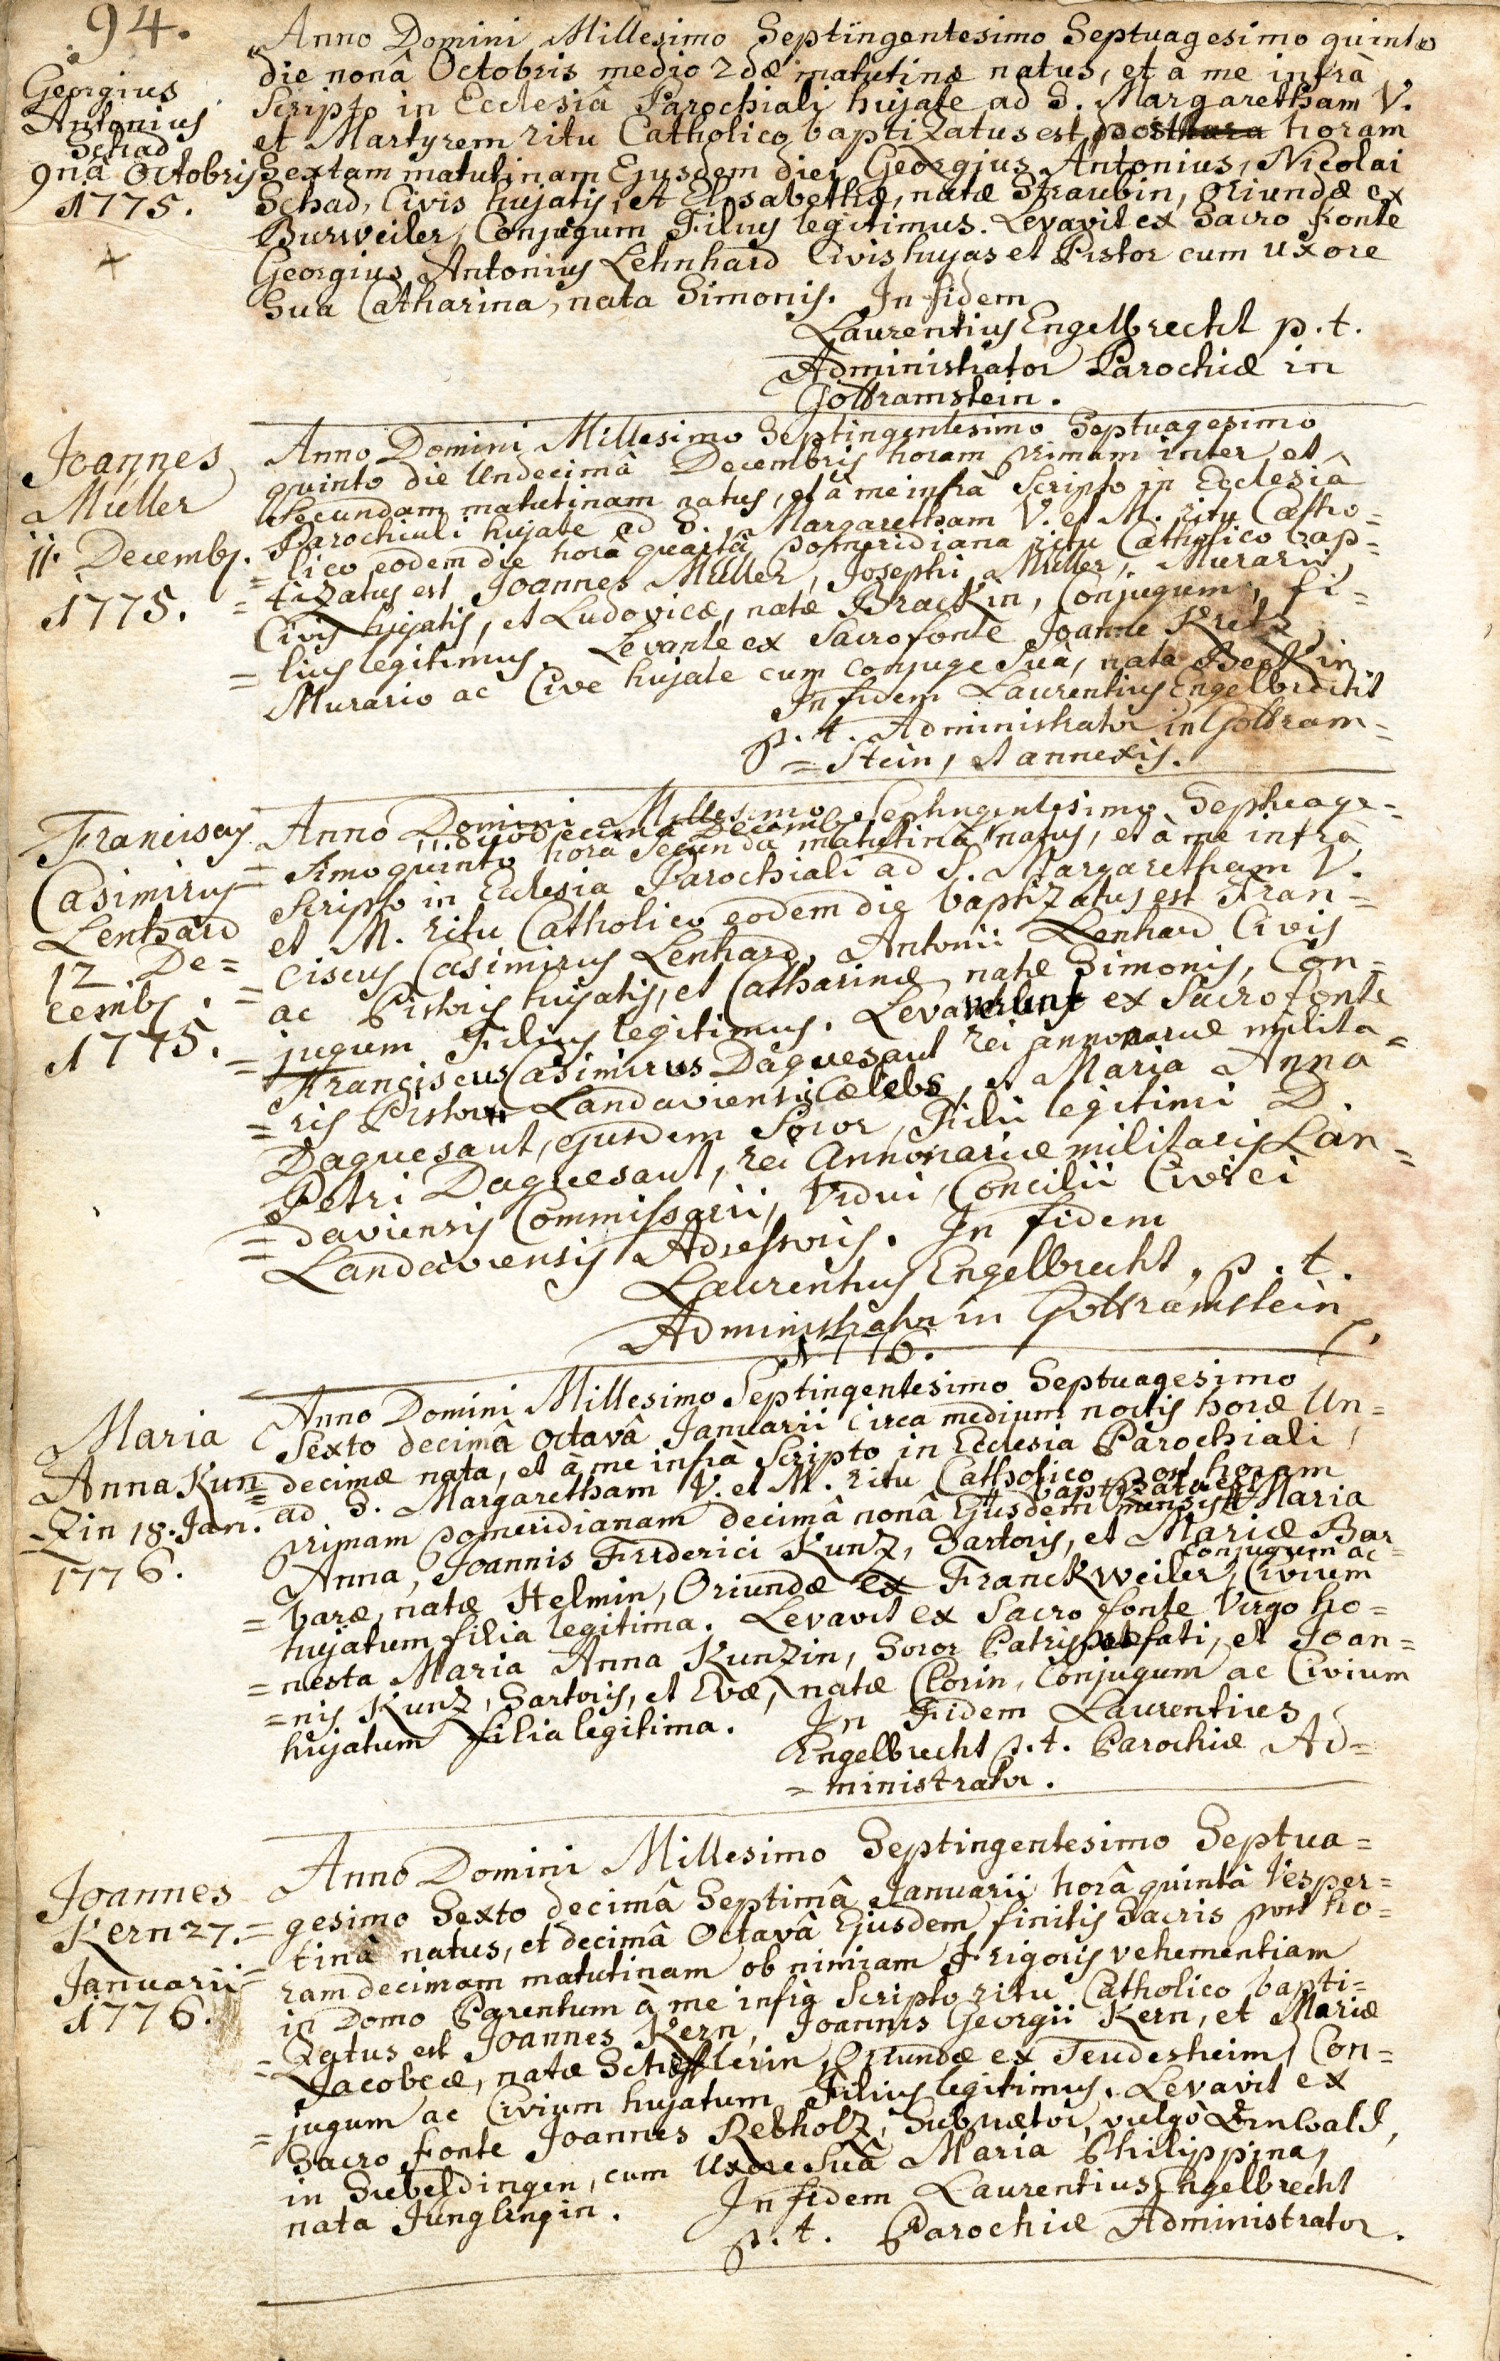 94.
Georgius
Antonius
Schad
9nâ Octobris
1775.
Anno Domini Millesimo Septingentesimo Septuagesimo quinto
die nonâ Octobris medio 2dæ matutinæ natus, et à me infrà
Scripto in Ecclesiâ Parochiali hujate ad S. Margaretham V.
et Martyrem ritu Catholico baptizatus est horam
Sextam matutinam Ejusdem diei Georgius Antonius, Nicolai
Schad, Civis hujatis, et Elisabethæ, natæ Straubin, oriundæ ex
Burweiler, Conjugum Filius legitimus. Levavit ex Sacro fonte
Georgius Antonius Lehnhard Civis hujas et Pistor cum uxore
Sua Catharina, nata Simonis. In fidem
Laurentius Engelbrecht p. t.
Administrator Parochiæ in
Gottramstein.
Joannes
Müller
11. Decembr.
1775.
Anno Domini Millesimo Septingentesimo Septuagesimo
quinto die Undecimâ Decembris horam primam inter et
Secundam matutinam natus, et à me infrà Scripto in Ecclesiâ
Parochiali hujate ad S. Margaretham V. et M. ritu Catho=
=lico eodem die horâ quartâ pomeridiana ritu Catholico bap=
=tizatus est Joannes Müller, Josephi Müller, Murarii,
Civis hujatis, et Ludovicæ, natæ Brackin, Conjugum, fi=
=lius legitimus. Levante ex Sacro fonte Joanne Kretz
Murario ac Cive hujate cum conjuge Suâ, nata Beckin
In fidem Laurentius Engelbrecht
p. t. Administrator in Gottram=
=stein, et annexis.
Franciscus
Casimirus
Lenhard
12 De=
cembr.
1775.
Anno Domini Millesimo Septingentesimo Septuage=
duodecima Decemb
=simo quinto horâ Secundâ matutinâ natus, et à me infrà
Scripto in Ecclesia Parochiali ad S. Margaretham V.
et M. ritu Catholico eodem die baptizatus est Fran=
=ciscus Casimirus Lenhard, Antonii Lenhard Civis
ac Pistoris hujatis, et Catharinæ natæ Simonis, Con=
=jugum Filius legitimus. Levaverunt ex Sacro fonte
Franciscus Casimirus Daguesaut rei annonariæ milita=
=ris Landaviensis Cælebs, et Maria Anna
Daguesaut, ejusdem Soror, Filii legitimi D.
Petri Daguesaut, rei Annonariæ militaris Lan=
=daviensis Commissarii, Vidui, Concilii Civici
Landaviensis Adsessoris. In fidem
Laurentius Engelbrecht, p. t.
Administrator in Gottramstein
1776.
Maria
Anna Kun=
=zin 18. Jan.
1776.
Anno Domini Millesimo Septingentesimo Septuagesimo
Sexto decimâ Octavâ Januarii Circa medium noctis horæ Un=
=decimæ nata, et à me infrà Scripto in Ecclesia Parochiali
ad S. Margaretham V. et M. ritu Catholico post horam
baptizata est
primam pomeridianam decimâ nonâ Ejusdem mensis Maria
Anna, Joannis Frederici Kunz, Sartoris, et Mariæ Bar=
conjugum ac
=baræ, natæ Helmin, Oriundæ ex Franckweiler, Civium
hujatum filia legitima. Levavit ex Sacro fonte Virgo ho=
=nesta Maria Anna Kunzin, Soror Patris præfati, et Joan=
=nis Kunz, Sartoris, et Evæ, natæ Clorin, Conjugum ac Civium
hujatum filia legitima. In Fidem Laurentius
Engelbrecht p. t. Parochiæ Ad=
=ministrator.
Joannes
Kern 27.
Januarii
1776.
Anno Domini Millesimo Septingentesimo Septua=
=gesimo Sexto decimâ Septimâ Januarii horâ quintâ Vesper=
tinâ natus, et decimâ Octavâ Ejusdem finitis Sacris post ho=
=ram decimam matutinam ob nimiam Frigoris vehementiam
in Domo Parentum à me infrà Scripto ritu Catholico bapti=
=zatus est Joannes Kern, Joannis Georgii Kern, et Mariæ
Jacobeæ, natæ Schefflerin, Oriundæ ex Teudesheim, Con=
=jugum ac Civium hujatum Filius legitimus. Levavit ex
Sacro Fonte Joannes Rebholz, vulgò
in Siebeldingen, cum Uxore Suâ Maria Philippina,
nata Junglingin. In fidem Laurentius Engelbrecht
p. t. Parochiæ Administrator.